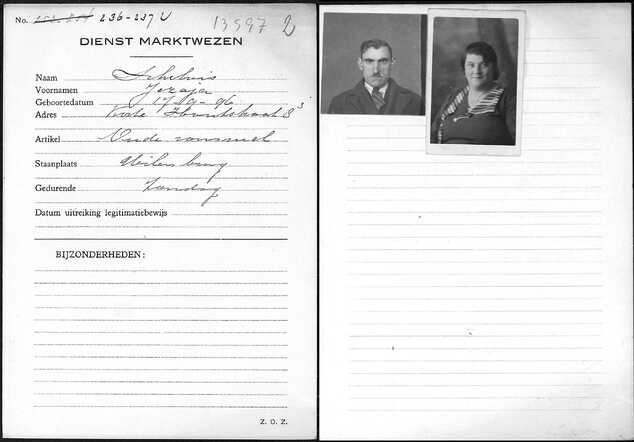 No. 236-237 V 13597 2
DIENST MARKTWEZEN
Naam Schuhuis
Voornamen Jezaja
Geboortedatum 17-9-96
Adres Korte Houtstraat 8 3
Artikel Oude rommel
Staanplaats Uilenburg
Gedurende Zondag
Datum uitreiking legitimatiebewijs
BIJZONDERHEDEN:
Z. O. Z.